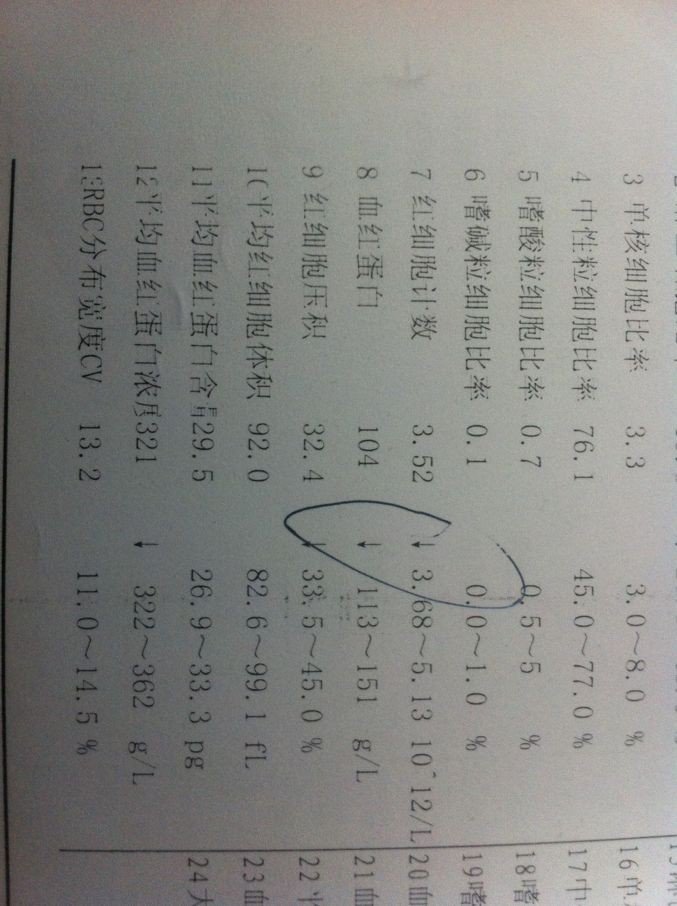 3 单核细胞比率 3.3 3.0～8.0 %
4 中性粒细胞比率 76.1 45.0～77.0 %
5 嗜酸粒细胞比率 0.7 0.5～5 %
6 嗜碱粒细胞比率 0.1 0.0～1.0 %
7 红细胞计数 3.52 ↓ 3.68～5.13 10^12/L
8 血红蛋白 104 ↓ 113～151 g/L
9 红细胞压积 32.4 ↓ 33.5～45.0 %
平均红细胞体积 92.0 82.6～99.1 fL
11 平均血红蛋白含 29.5 26.9～33.3 pg
平均血红蛋白浓 321 ↓ 322～362 g/L
RBC分布宽度CV 13.2 11.0～14.5 %
16 单
17 中
18 嗜
19 嗜
20 血
21 血
22
23 血
24 大